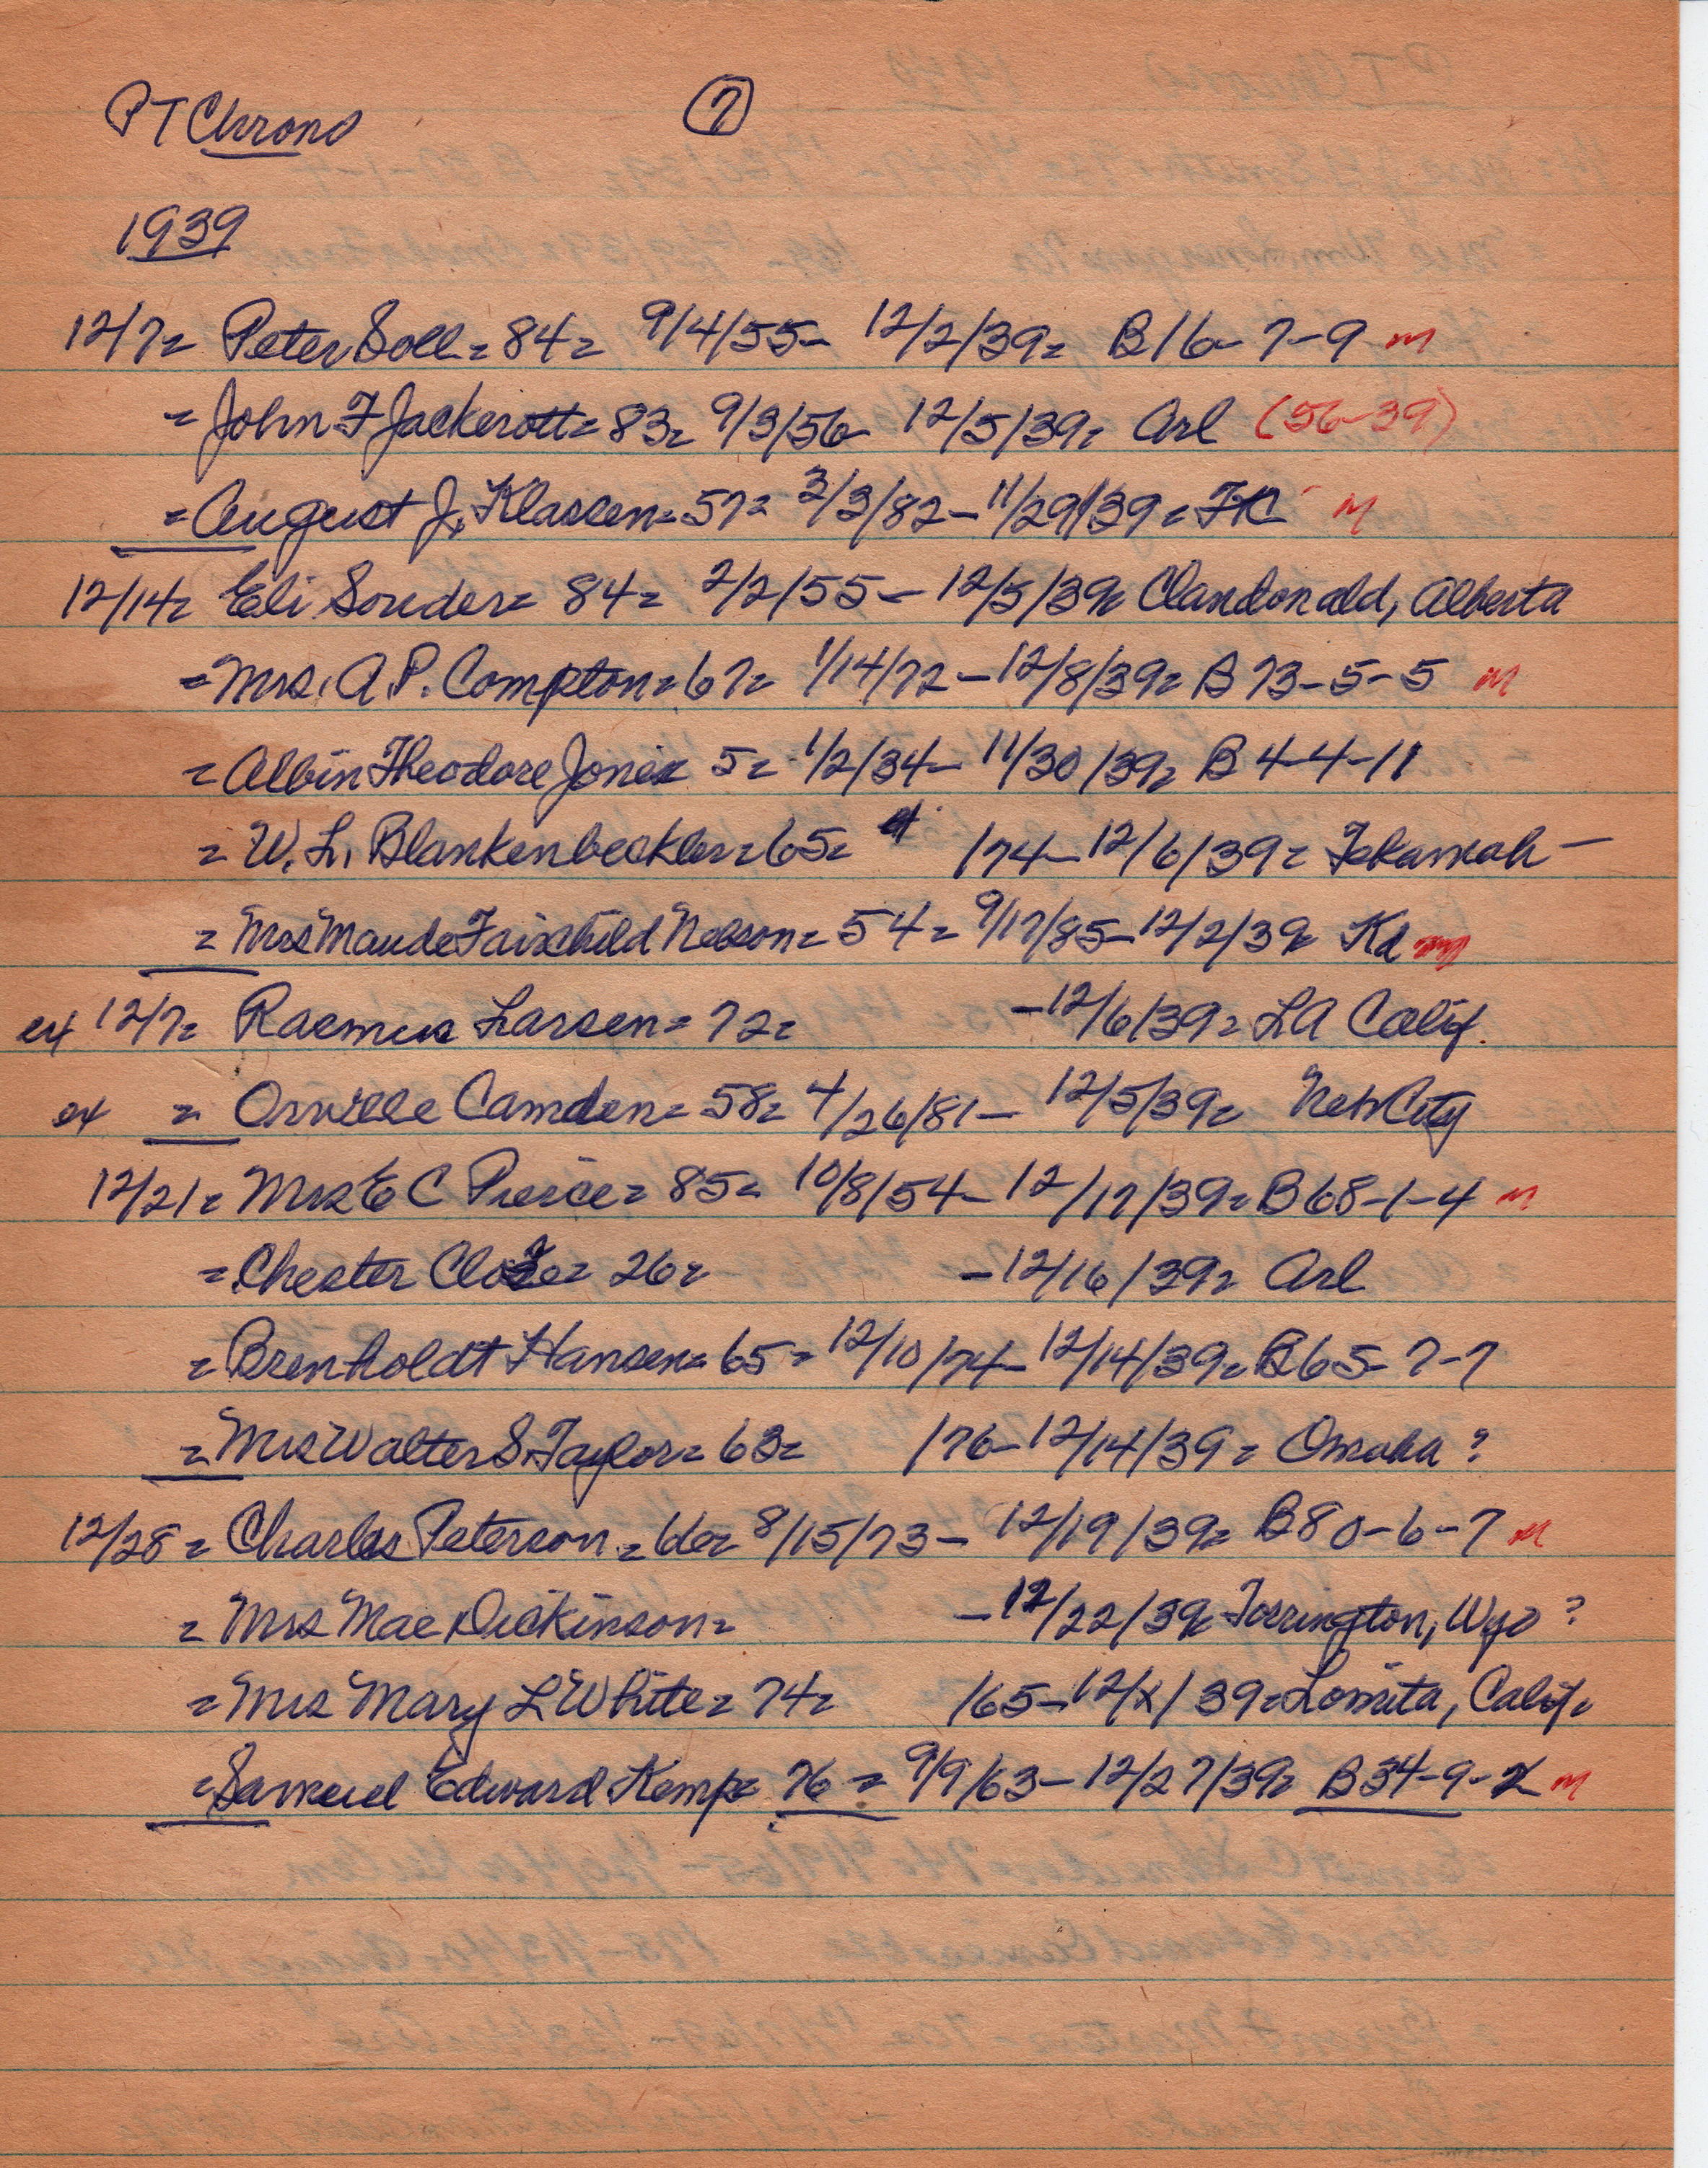 PT Chrono 7
1939
12/7= Peter Soll= 84= 9/4/55- 12/2/39= B16-7-9 m
= John F Jackerott= 83= 9/3/56- 12/5/39= Arl (56-39)
= August J. Klassen= 57= 3/3/82- 11/29/39= FK m
12/14= Eli Souder= 84= 2/2/55- 12/5/39= Clandonald, Alberta
= Mrs. A.P. Compton= 67= 1/14/72-12/8/39= B73-5-5 m
= Albin Theodore Jones 5= 1/2/34- 11/30/39= B4-4-11
= W. L. Blankenbeckler= 65= /74-12/6/39= Tekamah-
= Mrs Maude Fairchild Nelson= 54= 9/17/85-12/2/39= Kd m
ex 12/7= Rasmus Larsen= 72= -12/6/39= LA Calif.
ex = Orville Camden= 58= 4/26/81- 12/5/39= Neb City
12/21= Mrs E C Pierce= 85= 10/8/54- 12/17/39= B68-1-4 m
= Chester= 26= -12/16/39= Arl
= Brenholdt Hansen= 65= 12/10/74-12/14/39= B65-7-7
= Mrs Walter S. Taylor= 63= /76-12/14/39= Omaha ?
12/28= Charles Peterson= 66= 8/15/73- 12/19/39= B80-6-7 m
= Mrs Mae Dickinson= -12/22/39= Torrington, Wyo ?
= Mrs Mary L White= 74= /65-12/x/39= Lomita, Calif=
= Samuel Edward Kemp= 76= 9/9/63-12/27/39= B34-9-X m